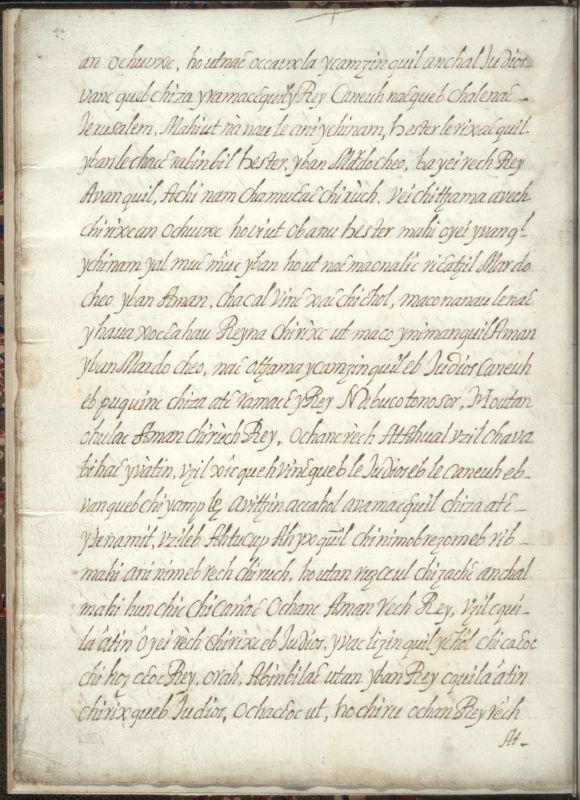 an ochuvxc, ho utnaɛ occavxla ycamzinquil anchal Judios
vanc queb chiza yvamaɛɛquil y Rey Caneuh naɛqueb chalenaɛ
Jerusalem, Mahiut nà nau le ani ychinam, hester le rixaɛquil
yban le chaɛɛ rabinbil hester, yban Mardocheo, ta yei rech Rey
Avanquil, Achi nam chamuɛaɛ chirùch. Vei chitzama avech
chirixc an ochuvxc ho viut ob anu hester mahi oyei yvanql̃
ychinam yal muɛ mûuc yban ho ut naɛ maonalîc riɛatzil Mardo
cheo yban Aman, cha cal vinɛ xaɛ chichol, maco nanau le naɛ
y hava xocɛahau Reyna chirixc ut maco ynimanquil Aman
yban Mardocheo, naɛ otzama ycamzinquil eb Judios Caneuh
eb puquinc chiza atɛ vamaɛ y Rey Nabucotonosor, Moutan
ohulac Aman chiruch Rey, ochanc rèch At Ahual vzil chava
bihaɛ yvàtin, vzil xîc queh vinɛqueb le Judios eb le caneuh eb
vanqueb chi yamp lę avitzin accahol avamaɛquil chiza atɛ
ytenamit, vzileb Ahtucup Ahyxquil chi nimobrezom eb rib
mahi ani nimeb rech chiruch, ho utan vuzccul chi zachɛ anchal
mabi hun chic chi Canôɛ ochanc Aman rech Rey, vzil cqui-
la âtin ôyei rech chirixc eb Judios, yvac tizinquil ychôl chi caɛoc
chi hoz cɛoc Rey, orah, Abinbilaɛ utan yban Rey cquila âtin
chirix queb Judios, ochaɛoc ut, ho chiru ochan Rey rèch
At-